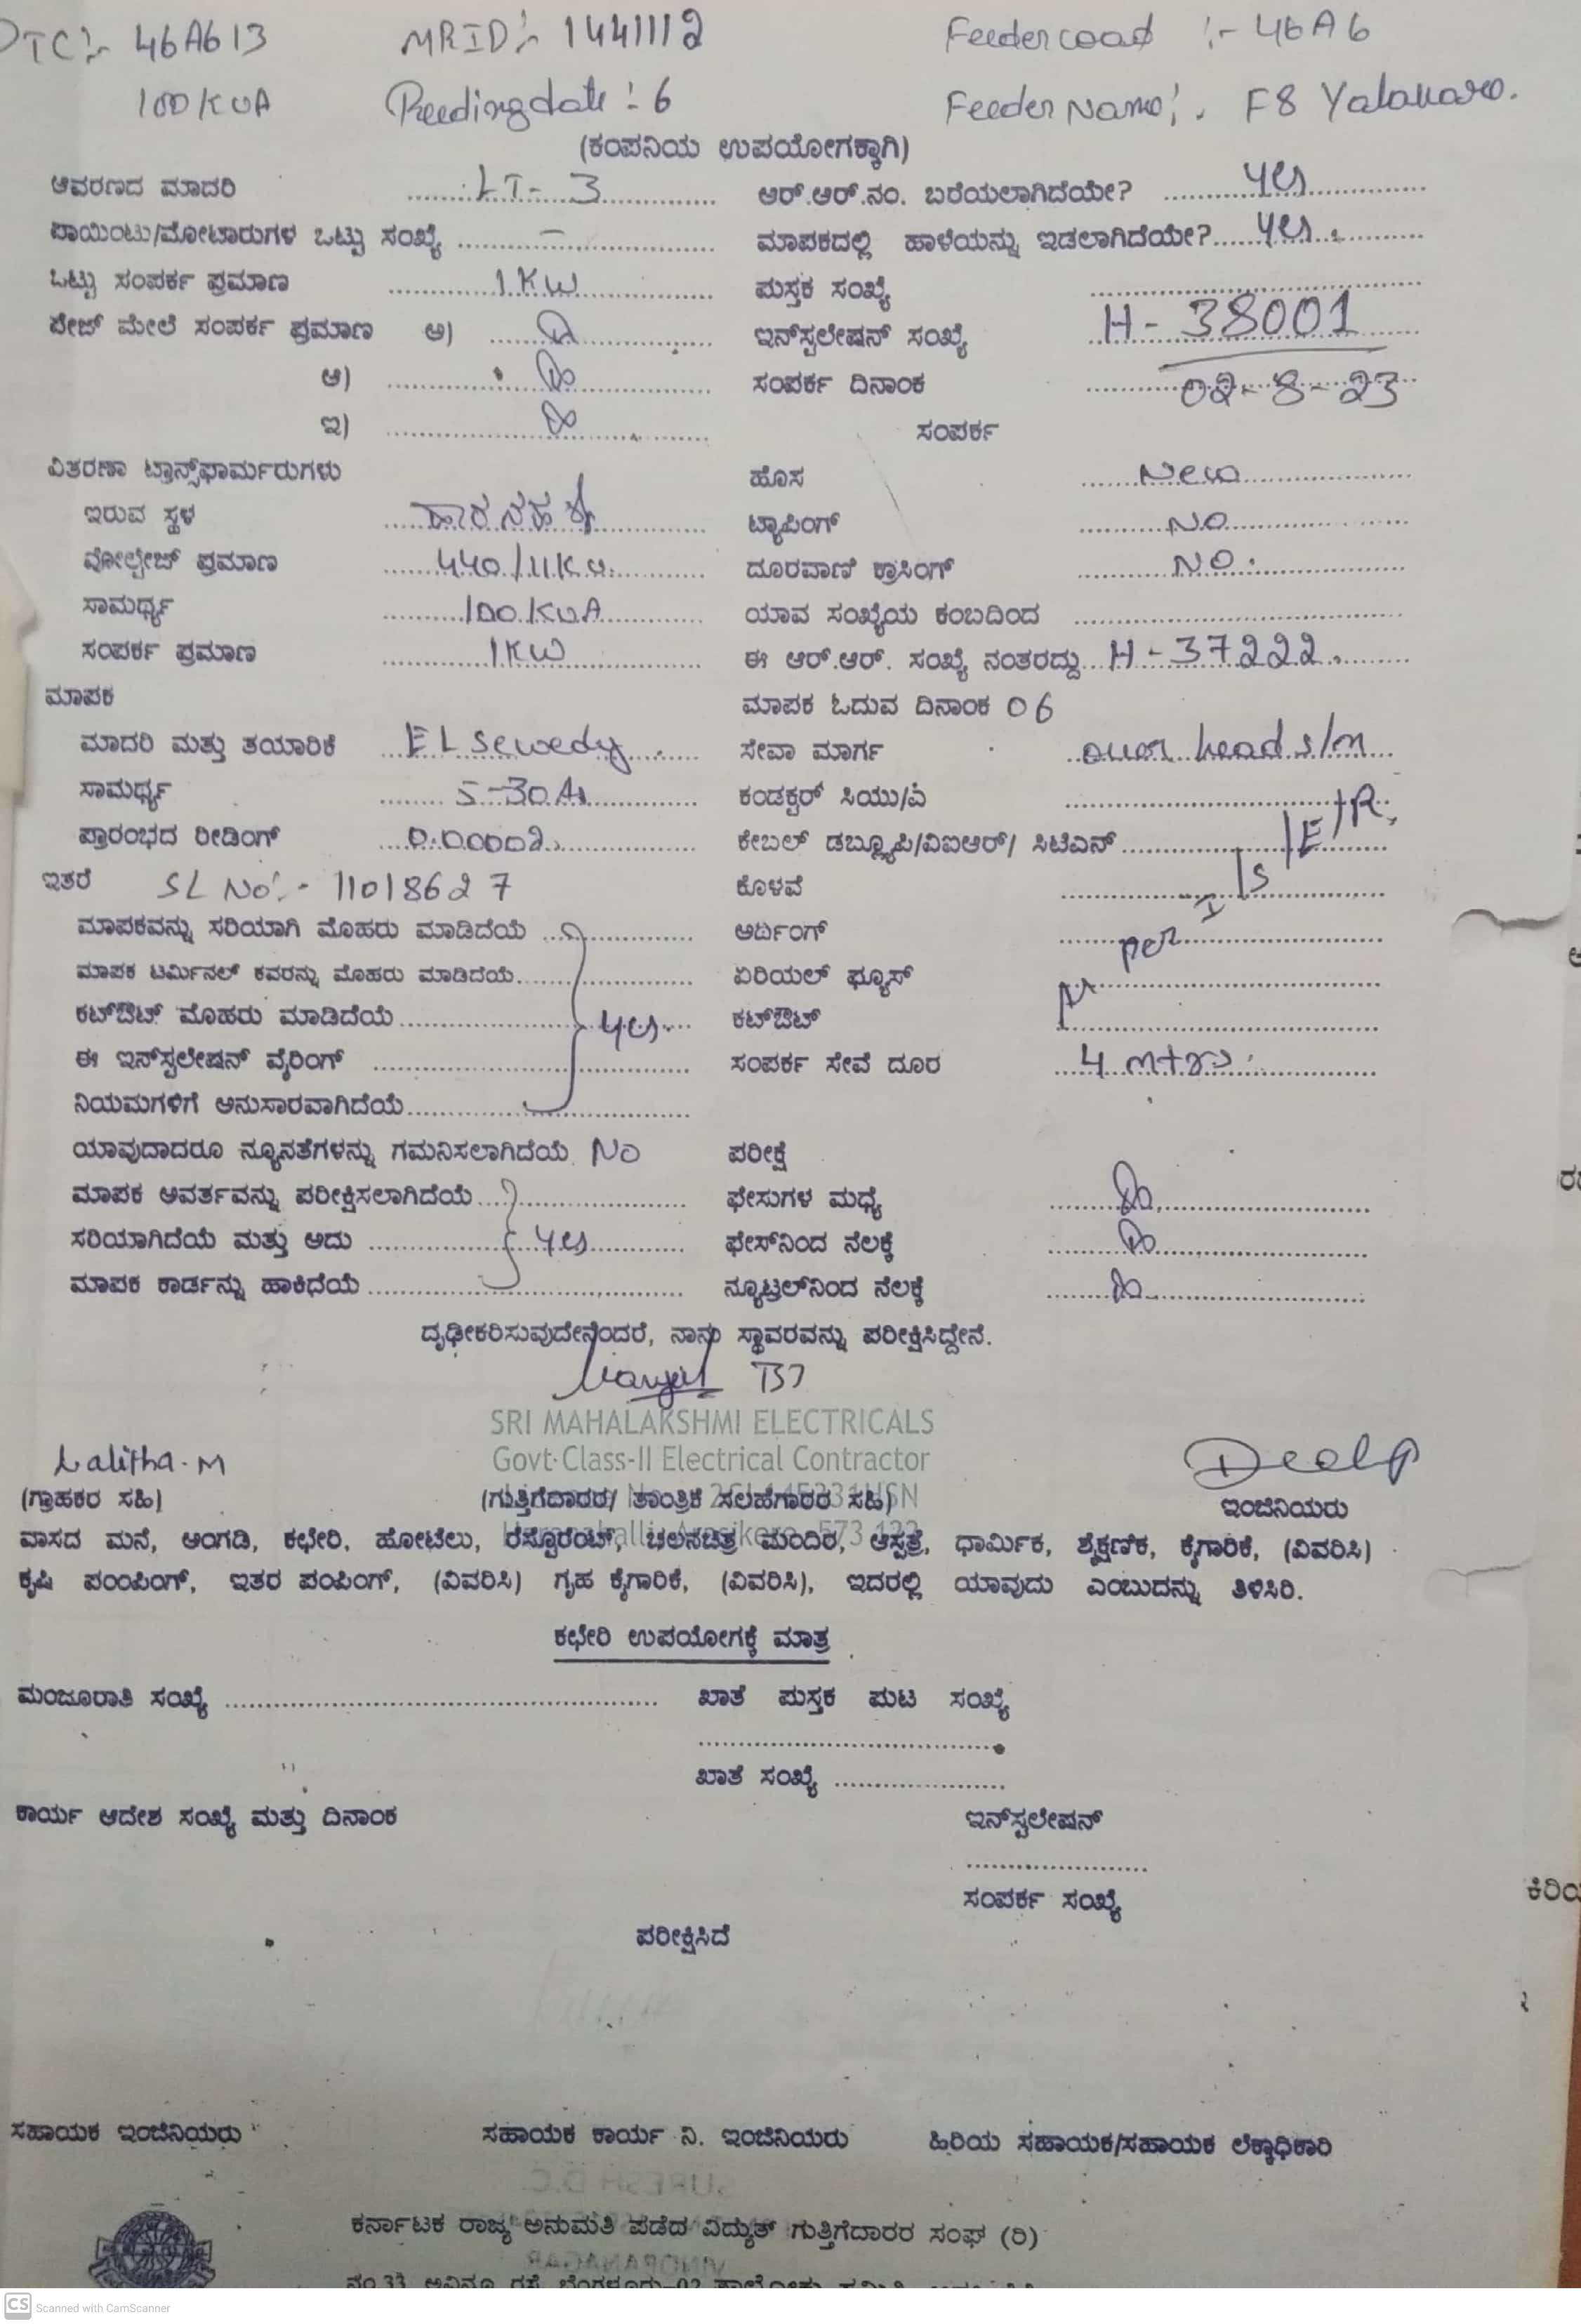 DTC:- 46A613 MRID:- 1441112 Feeder coad :- 46A6
100 KVA Reeding date : 6 Feeder Name: F8
(ಕಂಪನಿಯ ಉಪಯೋಗಕ್ಕಾಗಿ)
ಆವರಣದ ಮಾದರಿ ........LT-3........ ಆರ್.ಆರ್.ನಂ. ಬರೆಯಲಾಗಿದೆಯೇ? ........yes........
ಪಾಯಿಂಟು/ಮೋಟಾರುಗಳ ಒಟ್ಟು ಸಂಖ್ಯೆ ........–........ ಮಾಪಕದಲ್ಲಿ ಹಾಳೆಯನ್ನು ಇಡಲಾಗಿದೆಯೇ?.....yes.........
ಒಟ್ಟು ಸಂಪರ್ಕ ಪ್ರಮಾಣ ........1KW........ ಪುಸ್ತಕ ಸಂಖ್ಯೆ ................
ಪೇಜ್ ಮೇಲೆ ಸಂಪರ್ಕ ಪ್ರಮಾಣ ಅ) ................ ಇನ್‌ಸ್ಟಲೇಷನ್ ಸಂಖ್ಯೆ H-38001
ಆ) ................ ಸಂಪರ್ಕ ದಿನಾಂಕ ........02-8-23
ಇ) ................ ಸಂಪರ್ಕ
ವಿತರಣಾ ಟ್ರಾನ್ಸ್‌ಫಾರ್ಮರುಗಳು ಹೊಸ ........New........
ಇರುವ ಸ್ಥಳ ........ಹಾರನಹಳ್ಳಿ ಟ್ಯಾಪಿಂಗ್ ........NO........
ವೋಲ್ಟೇಜ್ ಪ್ರಮಾಣ ........440/11KV........ ದೂರವಾಣಿ ಕ್ರಾಸಿಂಗ್ ........NO........
ಸಾಮರ್ಥ್ಯ ........100KVA........ ಯಾವ ಸಂಖ್ಯೆಯ ಕಂಬದಿಂದ ................
ಸಂಪರ್ಕ ಪ್ರಮಾಣ ........1KW........ ಈ ಆರ್.ಆರ್. ಸಂಖ್ಯೆ ನಂತರದ್ದು...H-37222.......
ಮಾಪಕ ಮಾಪಕ ಓದುವ ದಿನಾಂಕ 06
ಮಾದರಿ ಮತ್ತು ತಯಾರಿಕೆ ...EL sewedy....... ಸೇವಾ ಮಾರ್ಗ ..over head s/m...
ಸಾಮರ್ಥ್ಯ ........5-30A........ ಕಂಡಕ್ಟರ್ ಸಿಯು/ಎ ................
ಪ್ರಾರಂಭದ ರೀಡಿಂಗ್ ...0.00002........ ಕೇಬಲ್ ಡಬ್ಲ್ಯೂಪಿ/ವಿಐಆರ್/ ಸಿಟಿಎಸ್................
ಇತರೆ SL No:- 11018627 ಕೊಳವೆ ................
ಮಾಪಕವನ್ನು ಸರಿಯಾಗಿ ಮೊಹರು ಮಾಡಿದೆಯೆ ................ ಅರ್ಥಿಂಗ್ ................
ಮಾಪಕ ಟರ್ಮಿನಲ್ ಕವರನ್ನು ಮೊಹರು ಮಾಡಿದೆಯೆ................ ಏರಿಯಲ್ ಫ್ಯೂಸ್ ........per........
ಕಟ್‌ಔಟ್ ಮೊಹರು ಮಾಡಿದೆಯೆ................yes.... ಕಟ್‌ಔಟ್ ................
ಈ ಇನ್‌ಸ್ಟಲೇಷನ್ ವೈರಿಂಗ್ ................ ಸಂಪರ್ಕ ಸೇವೆ ದೂರ ....4 mtrs........
ನಿಯಮಗಳಿಗೆ ಅನುಸಾರವಾಗಿದೆಯೆ................
ಯಾವುದಾದರೂ ನ್ಯೂನತೆಗಳನ್ನು ಗಮನಿಸಲಾಗಿದೆಯೆ NO ಪರೀಕ್ಷೆ
ಮಾಪಕ ಆವರ್ತವನ್ನು ಪರೀಕ್ಷಿಸಲಾಗಿದೆಯೆ................ ಫೇಸುಗಳ ಮಧ್ಯೆ ................
ಸರಿಯಾಗಿದೆಯೆ ಮತ್ತು ಅದು ........yes........ ಫೇಸ್‌ನಿಂದ ನೆಲಕ್ಕೆ ................
ಮಾಪಕ ಕಾರ್ಡನ್ನು ಹಾಕಿದೆಯೆ................ ನ್ಯೂಟ್ರಲ್‌ನಿಂದ ನೆಲಕ್ಕೆ ................
ದೃಢೀಕರಿಸುವುದೇನೆಂದರೆ, ನಾನು ಸ್ಥಾವರವನ್ನು ಪರೀಕ್ಷಿಸಿದ್ದೇನೆ.
SRI MAHALAKSHMI ELECTRICALS
Govt-Class-II Electrical Contractor
Lalitha.M
(ಗ್ರಾಹಕರ ಸಹಿ) (ಗುತ್ತಿಗೆದಾರರ/ ತಾಂತ್ರಿಕ ಸಲಹೆಗಾರರ ಸಹಿ) ಇಂಜಿನಿಯರು
ವಾಸದ ಮನೆ, ಅಂಗಡಿ, ಕಛೇರಿ, ಹೋಟೆಲು, ರೆಸ್ಟೊರೆಂಟ್, ಚಲನಚಿತ್ರ ಮಂದಿರ, ಆಸ್ಪತ್ರೆ, ಧಾರ್ಮಿಕ, ಶೈಕ್ಷಣಿಕ, ಕೈಗಾರಿಕೆ, (ವಿವರಿಸಿ)
ಕೃಷಿ ಪಂಪಿಂಗ್, ಇತರ ಪಂಪಿಂಗ್, (ವಿವರಿಸಿ) ಗೃಹ ಕೈಗಾರಿಕೆ, (ವಿವರಿಸಿ), ಇದರಲ್ಲಿ ಯಾವುದು ಎಂಬುದನ್ನು ತಿಳಿಸಿರಿ.
ಕಛೇರಿ ಉಪಯೋಗಕ್ಕೆ ಮಾತ್ರ
ಮಂಜೂರಾತಿ ಸಂಖ್ಯೆ ................ ಖಾತೆ ಪುಸ್ತಕ ಪುಟ ಸಂಖ್ಯೆ
................
ಖಾತೆ ಸಂಖ್ಯೆ ................
ಕಾರ್ಯ ಆದೇಶ ಸಂಖ್ಯೆ ಮತ್ತು ದಿನಾಂಕ ಇನ್‌ಸ್ಟಲೇಷನ್
................
ಸಂಪರ್ಕ ಸಂಖ್ಯೆ
ಪರೀಕ್ಷಿಸಿದೆ
ಸಹಾಯಕ ಇಂಜಿನಿಯರು ಸಹಾಯಕ ಕಾರ್ಯ ನಿ. ಇಂಜಿನಿಯರು ಹಿರಿಯ ಸಹಾಯಕ/ಸಹಾಯಕ ಲೆಕ್ಕಾಧಿಕಾರಿ
ಕರ್ನಾಟಕ ರಾಜ್ಯ ಅನುಮತಿ ಪಡೆದ ವಿದ್ಯುತ್ ಗುತ್ತಿಗೆದಾರರ ಸಂಘ (ರಿ)
CS Scanned with CamScanner